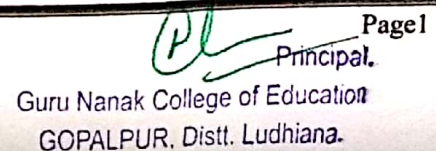 Page1
Principal.
Guru Nanak College of Education
GOPALPUR. Distt. Ludhiana.